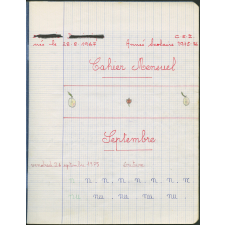 née le 28-8-1967 Année Scolaire 1975-76
C E 2
Cahier Mensuel
Septembre
vendredi 26 septembre 1975 écriture
n . n . n . n . n . n . n
nu . nu . nu . nu . nu